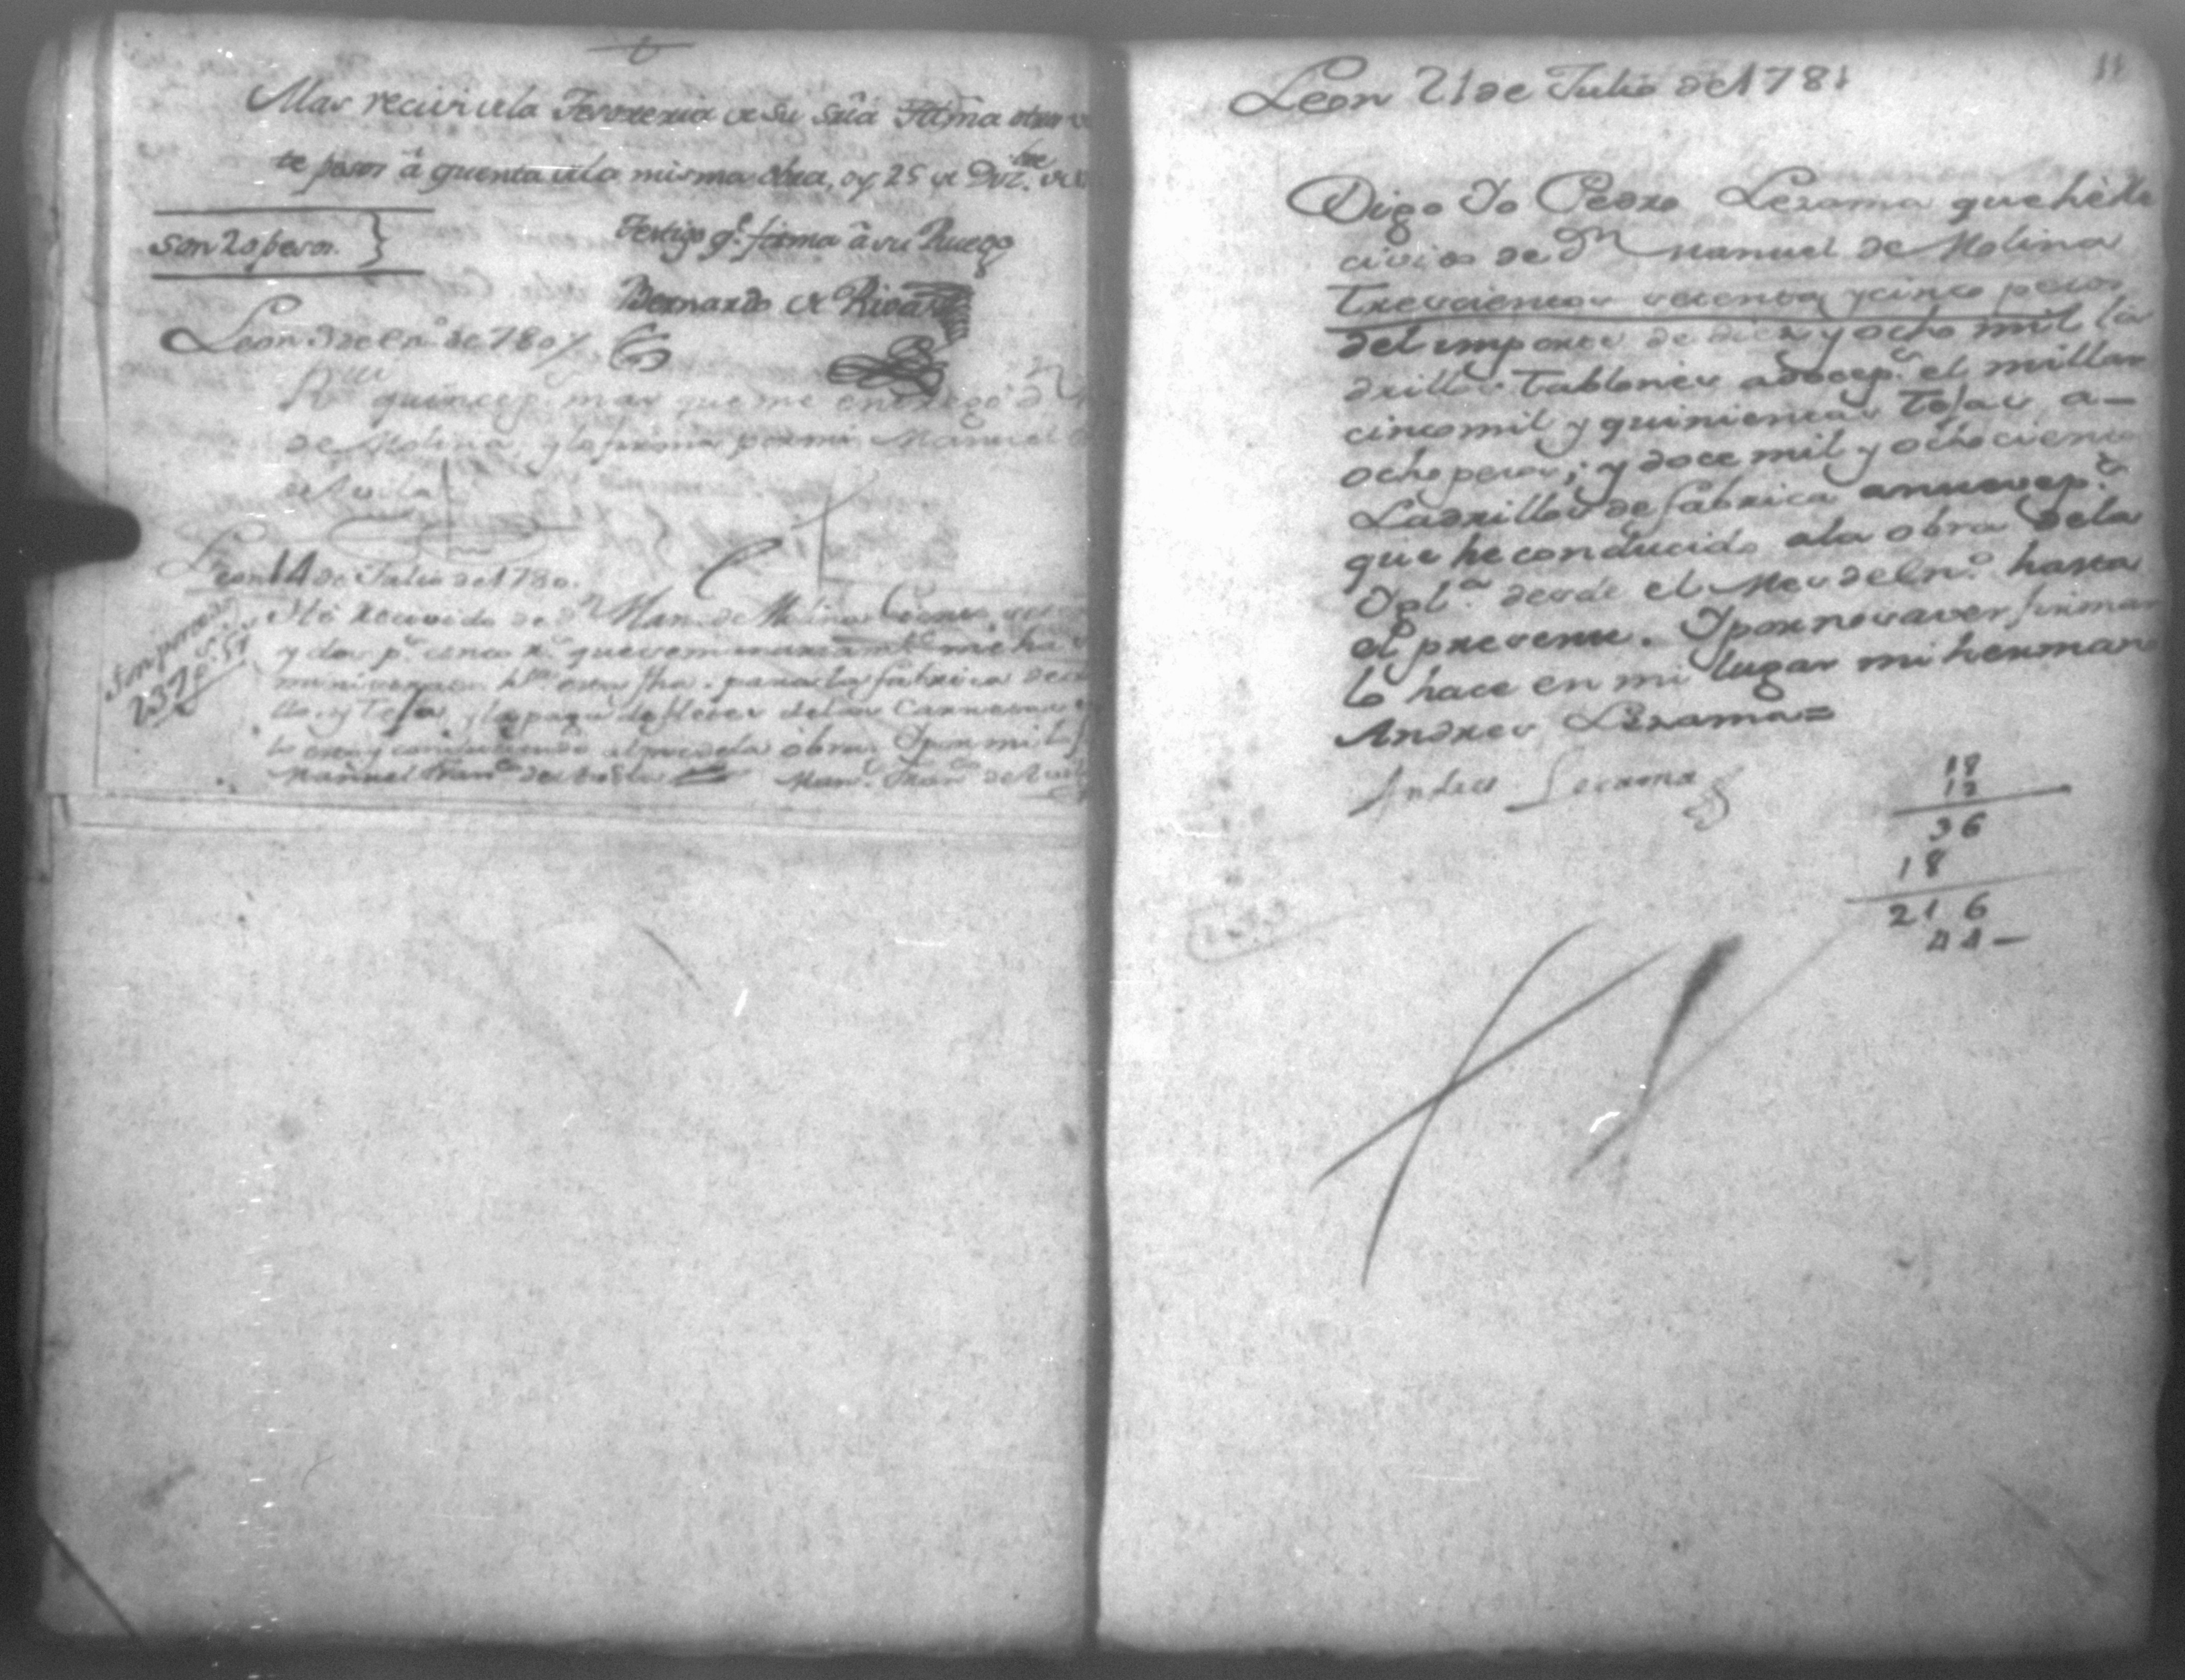 Mas recivi de la Tesoreria de su Sria Illma otros
te pesos â quenta de la misma obra, oy 25 de Dizbre. de
son 20 pesos.
Testigo qe. firma â su Ruego
Bernardo de Rivas
Leon 3 de En.o de 780
Rvi quince p.s mas que me entregó Dn
de Molina, y lo firma por mi Manuel
de Avila
Leon 14 de Julio de 1780.
Hè Recivido de Dn Man.l de Molina
y dos p.s cinco r.s que semanariamte me ha
ministrado hta esta fha. para la fabrica de
llo, y Teja, y la paga de fletes de las Carretas
lo estoy conduciendo al pie de la obra. Y por mi lo
Manuel Fran.co de Avila Man.l Fran.co de Avila
Son por todo
237 p.s 5 r.s
11
Leon 21 de Julio de 1781
Digo Yo Pedro Lezama que hè Re
civido de Dn Manuel de Molina
Trescientos setenta y cinco pesos
del importe de diez y ocho mil la
drillos Tablones a doce p.s el millar
cinco mil y quinientas Tejas, a
ocho pesos; y doce mil y ochocientos
Ladrillos de fabrica a nueve p.s
que he conducido a la obra de la
Ygl.a desde el Mes de En.o hasta
el presente. Y por no saver firmar
lo hace en mi lugar mi hermano
Andres Lezama=
Andres Lezama
18
12
36
18
21 6
44-